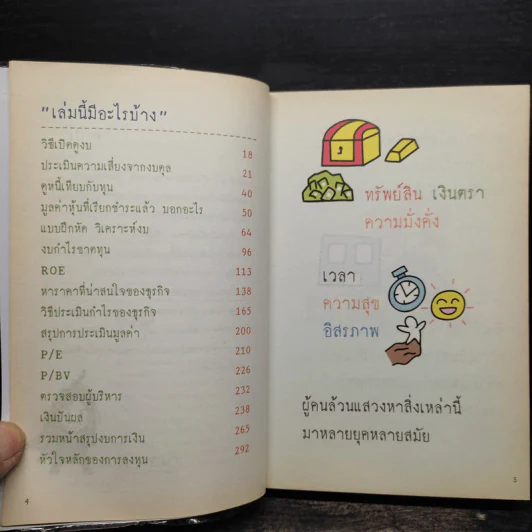 "เล่มนี้มีอะไรบ้าง"
วิธีเปิดดูงบ 18
ประเมินความเสี่ยงจากงบดุล 21
ดูหนี้เทียบกับทุน 40
มูลค่าหุ้นที่เรียกชำระแล้ว บอกอะไร 50
แบบฝึกหัด วิเคราะห์งบ 64
งบกำไรขาดทุน 96
ROE 113
หาราคาที่น่าสนใจของธุรกิจ 138
วิธีประเมินกำไรของธุรกิจ 165
สรุปการประเมินมูลค่า 200
P/E 210
P/BV 226
ตรวจสอบผู้บริหาร 232
เงินปันผล 238
รวมหน้าสรุปงบการเงิน 265
หัวใจหลักของการลงทุน 292
4
ทรัพย์สิน เงินตรา
ความมั่งคั่ง
เวลา
ความสุข
อิสรภาพ
ผู้คนล้วนแสวงหาสิ่งเหล่านี้
มาหลายยุคหลายสมัย
5